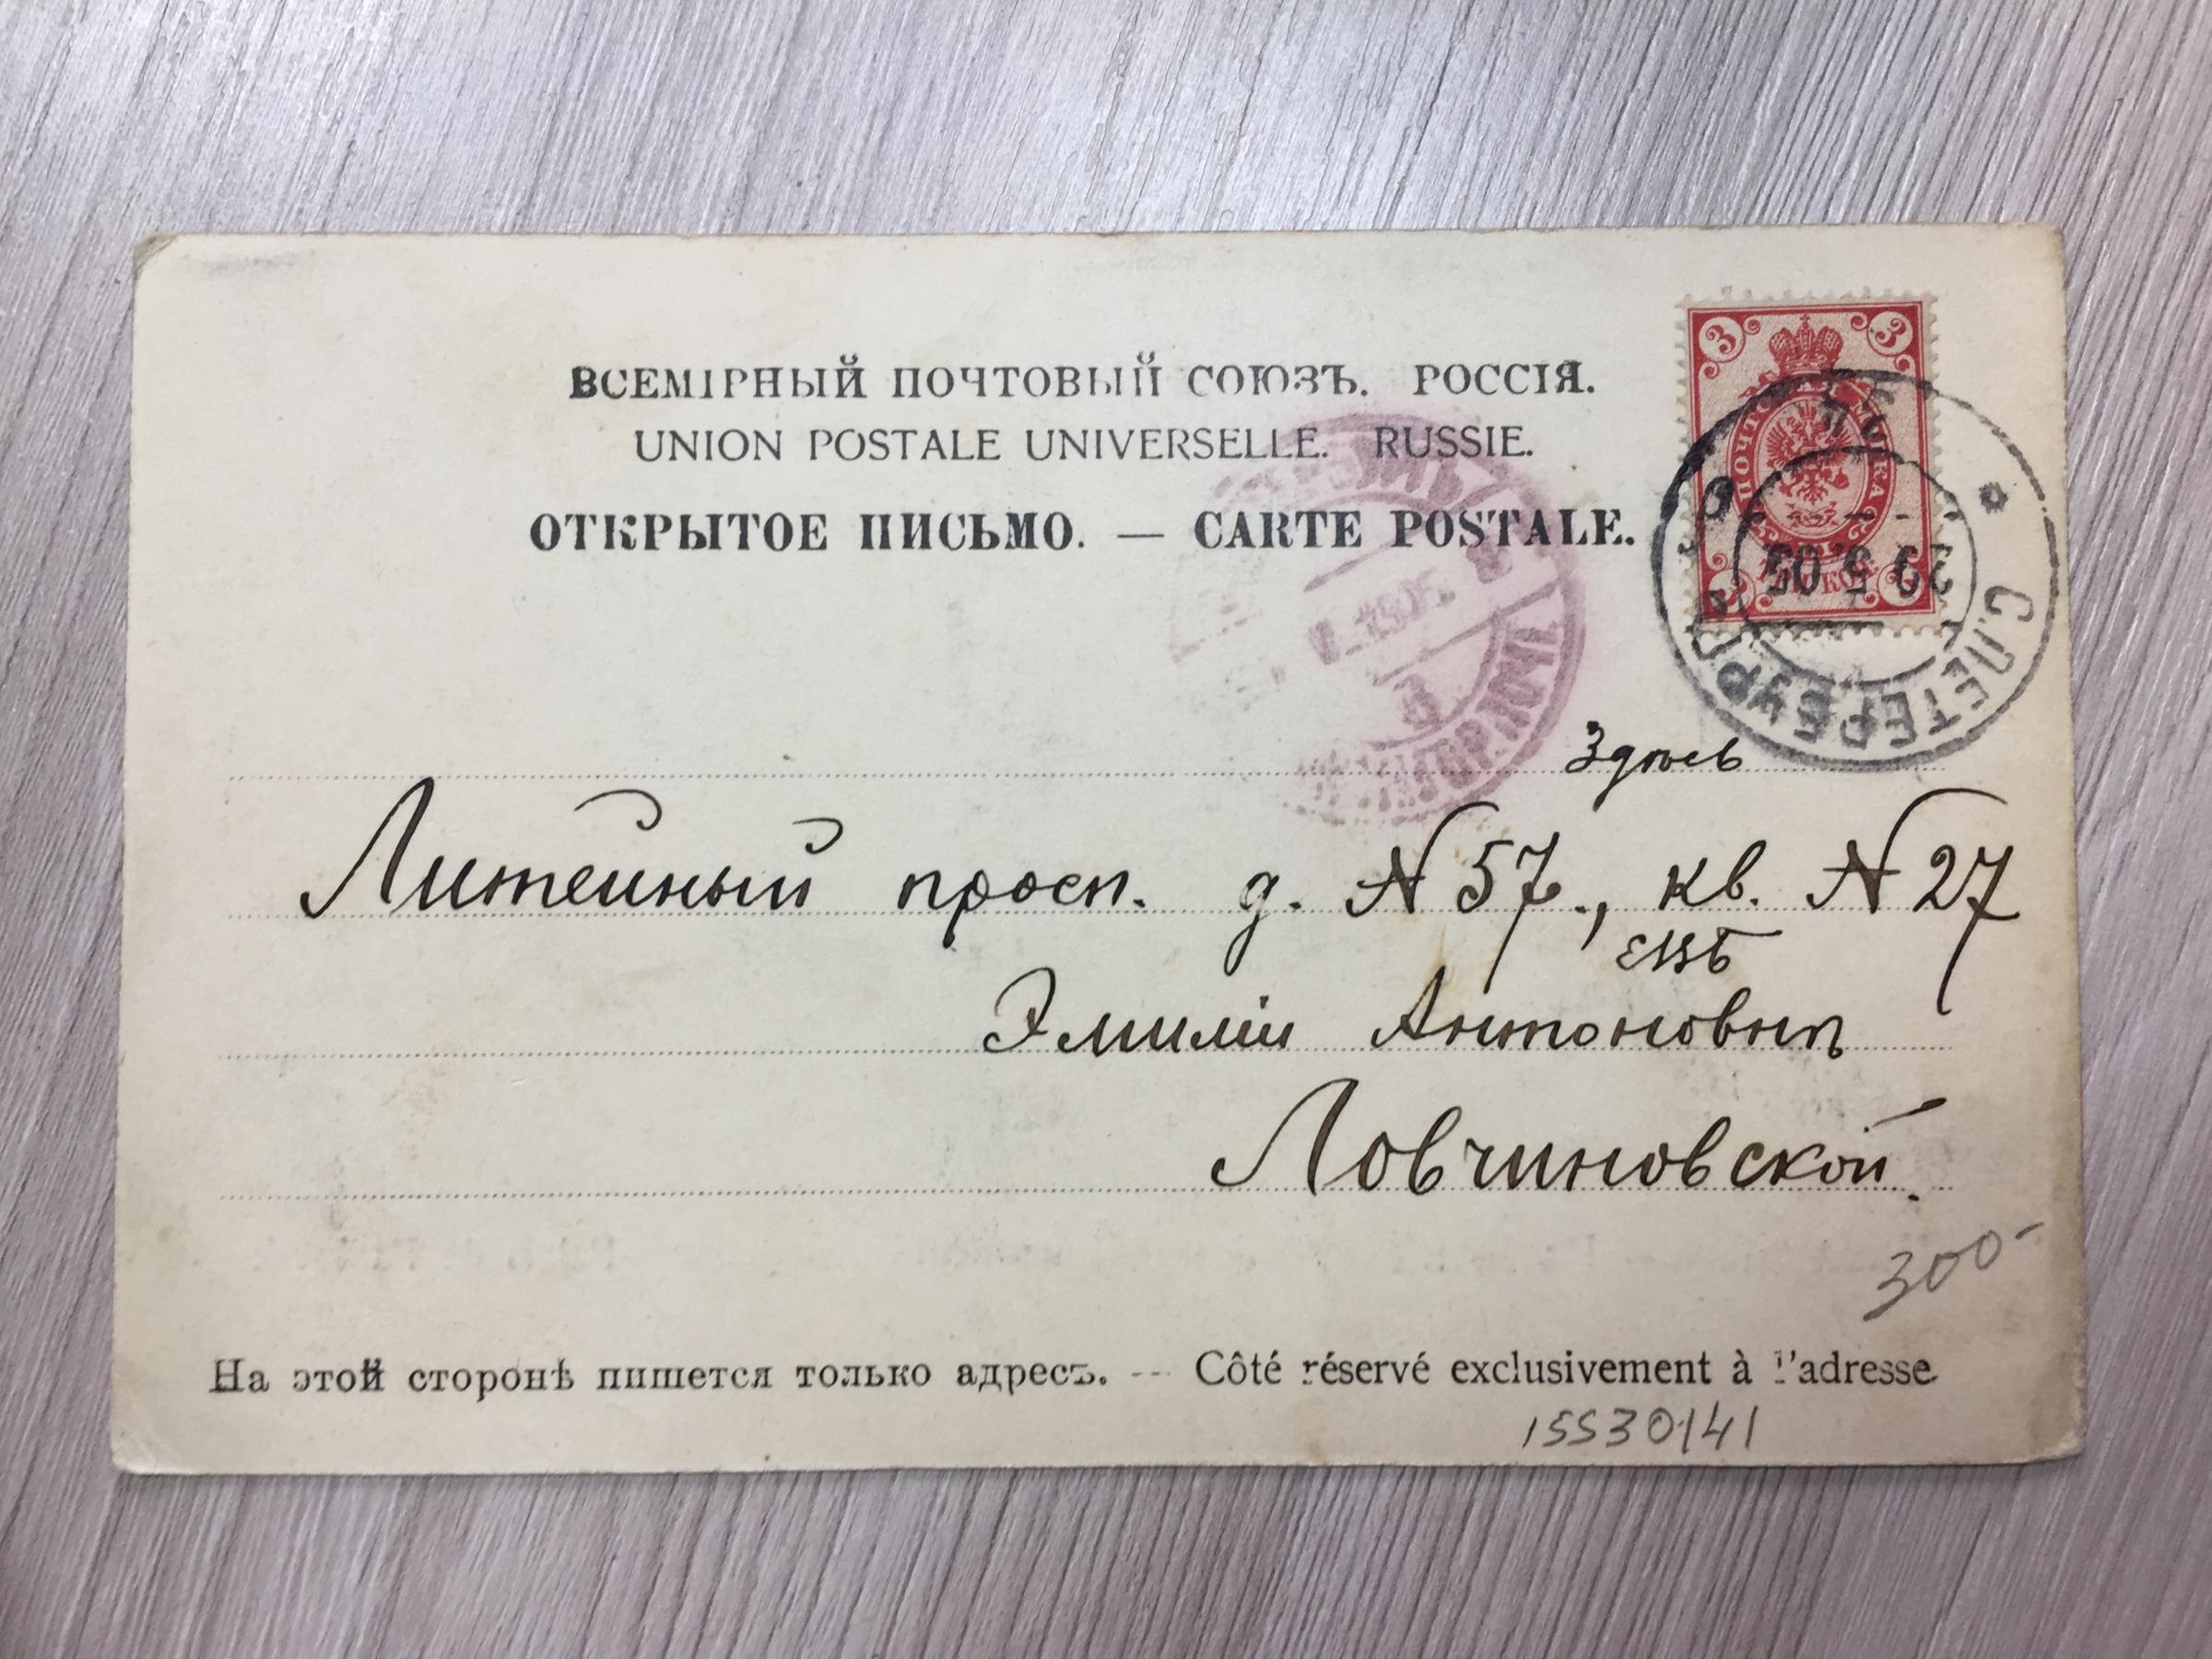 ВСЕМІРНЫЙ ПОЧТОВЫЙ СОЮЗЪ. РОССІЯ.
UNION POSTALE UNIVERSELLE. RUSSIE.
ОТКРЫТОЕ ПИСЬМО. — CARTE POSTALE.
3 3
ПОЧТОВАЯ МАРКА
С.ПЕТЕРБУРГЪ
5.05
Здѣсь
Литейный просп. д. № 57., кв. № 27
ЕВБ
Эмиліи Антоновнѣ
Ловчиновской.
300-
На этой сторонѣ пишется только адресъ. -- Côté réservé exclusivement à l'adresse
15530141